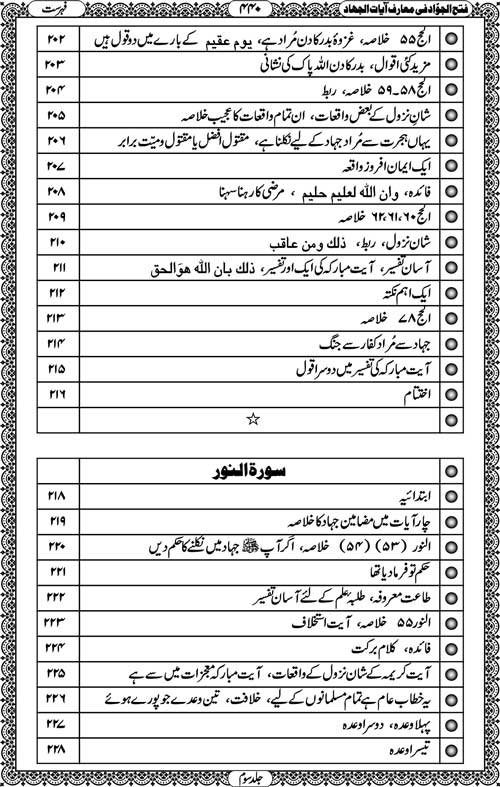 فتح الجوّاد فی معارف آیات الجہاد ۴۴۰ فہرست
الحج ۵۵ خلاصہ، غزوۂ بدر کا دن مُراد ہے، یوم عقیم کے بارے میں دو قول ہیں ۲۰۲
مزید کئی اقوال، بدر کا دن اللہ پاک کی نشانی ۲۰۳
الحج ۵۸۔۵۹ خلاصہ، ربط ۲۰۴
شانِ نزول کے بعض واقعات، ان تمام واقعات کا عجیب خلاصہ ۲۰۵
یہاں ہجرت سے مُراد جہاد کے لیے نکلنا ہے، مقتول افضل یا مقتول و میّت برابر ۲۰۶
ایک ایمان افروز واقعہ ۲۰۷
فائدہ، وان الله لعليم حليم، مرضی کا رہنا سہنا ۲۰۸
الحج ۶۰،۶۱،۶۲ خلاصہ ۲۰۹
شان نزول، ربط، ذلك ومن عاقب ۲۱۰
آسان تفسیر، آیت مبارکہ کی ایک اور تفسیر، ذلك بان الله هو الحق ۲۱۱
ایک اہم نکتہ ۲۱۲
الحج ۷۸ خلاصہ ۲۱۳
جہاد سے مُراد کفار سے جنگ ۲۱۴
آیت مبارکہ کی تفسیر میں دوسرا قول ۲۱۵
اختتام ۲۱۶
☆
سورة النور
ابتدائیہ ۲۱۸
چار آیات میں مضامین جہاد کا خلاصہ ۲۱۹
النور (۵۳) (۵۴) خلاصہ، اگر آپ ﷺ جہاد میں نکلنے کا حکم دیں ۲۲۰
حکم تو فرما دیا تھا ۲۲۱
طاعت معروفہ، طلبہ علم کے لئے آسان تفسیر ۲۲۲
النور ۵۵ خلاصہ، آیت استخلاف ۲۲۳
فائدہ، کلام برکت ۲۲۴
آیت کریمہ کے شان نزول کے واقعات، آیت مبارکہ معجزات میں سے ہے ۲۲۵
یہ خطاب عام ہے تمام مسلمانوں کے لیے، خلافت، تین وعدے جو پورے ہوئے ۲۲۶
پہلا وعدہ، دوسرا وعدہ ۲۲۷
تیسرا وعدہ ۲۲۸
جلد سوم